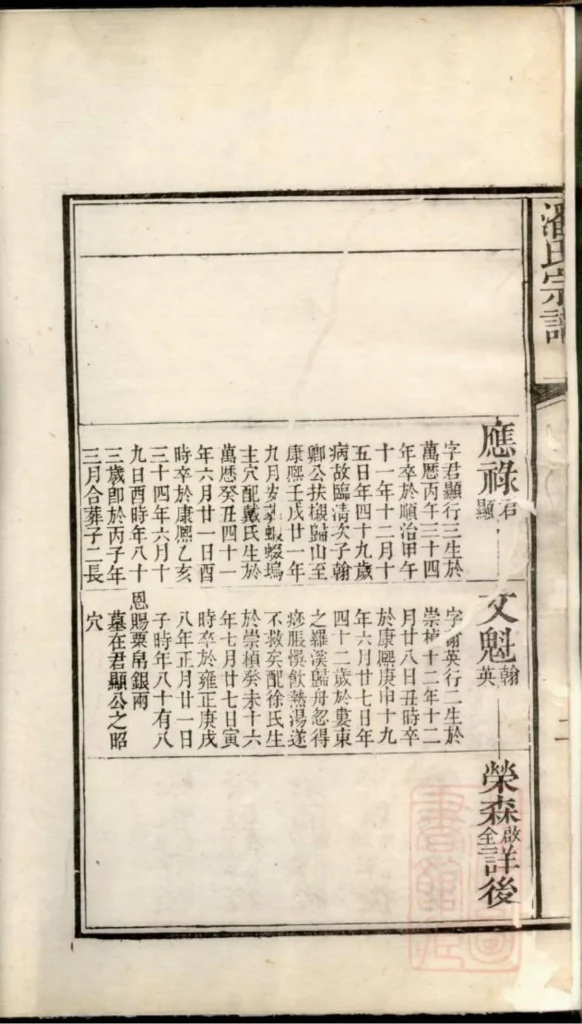 潘氏宗譜
應祿 君顯
字君顯行三生於
萬曆丙午三十四
年卒於順治甲午
十一年十二月十
五日年四十九歲
病故臨清次子翰
卿公扶櫬歸山至
康熙壬戌廿一年
九月安葬蝦蟆塢
主穴配戴氏生於
萬曆癸丑四十一
年六月廿一日酉
時卒於康熙乙亥
三十四年六月十
九日酉時年八十
三歲卽於丙子年
三月合葬子二長
文魁 翰英
字翰英行二生於
崇楨十二年十二
月廿八日丑時卒
於康熙庚申十九
年六月廿七日年
四十二歲於婁東
之羅漢歸舟忽得
痧脹悞飲熱湯遂
不救矣配徐氏生
於崇楨癸未十六
年七月廿七日寅
時卒於雍正庚戌
八年正月廿一日
子時年八十有八
恩賜粟帛銀兩
墓在君顯公之昭
穴
榮森 啟全 二詳後